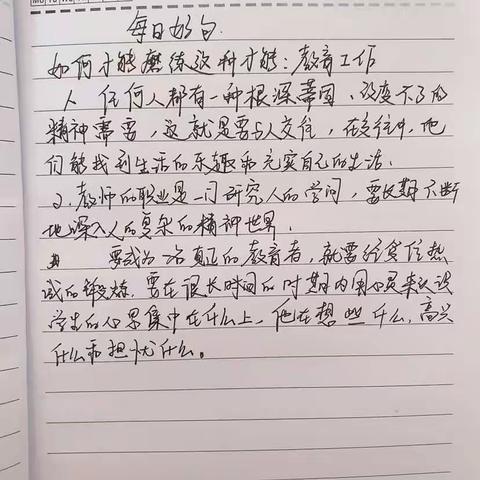 每日好句.
如何才能磨练这种才能：教育工作
1、任何人都有一种根深蒂固、改变不了的
精神需要，这就是要与人交往，在交往中，他
们能找到生活的乐趣和充实自己的生活.
2、教师的职业是一门研究人的学问，要长期不断
地深入人的复杂的精神世界.
要成为一名真正的教育者，就要经受住热
诚的锻炼.要在很长时间的时期内用心灵来认识
学生的心思集中在什么上，他在想些什么，高兴
什么和担忧什么。